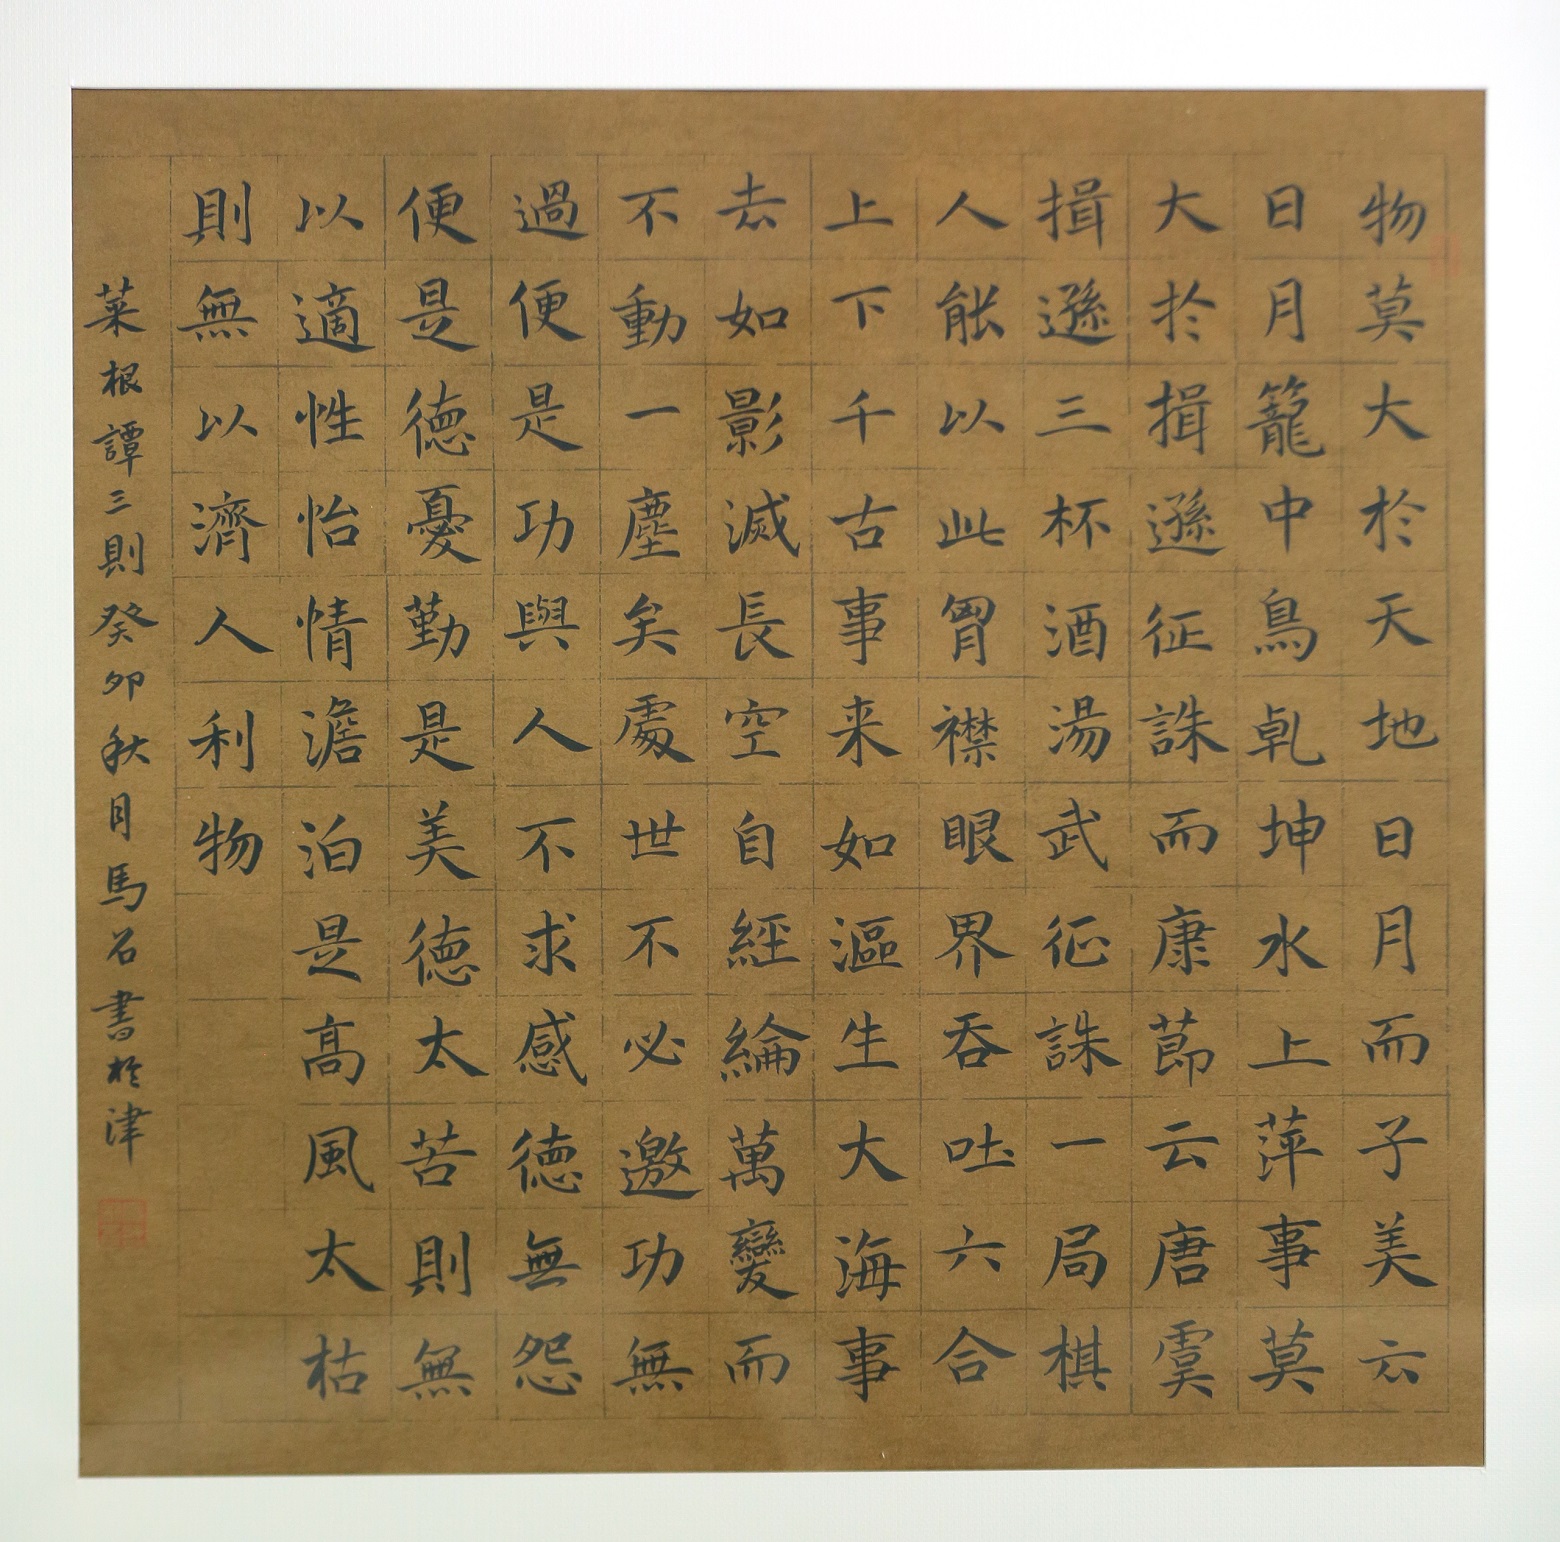 物莫大於天地日月而子美云
日月籠中鳥乹坤水上萍事莫
大於揖遜征誅而康莭云唐虞
揖遜三杯酒湯武征誅一局棋
人能以此胷襟眼界吞吐六合
上下千古事来如漚生大海事
去如影滅長空自經綸萬變而
不動一塵矣處世不必邀功無
過便是功與人不求感德無怨
便是德憂勤是美德太苦則無
以適性怡情澹泊是高風太枯
則無以濟人利物
菜根譚三則癸卯秋月馬名書於津